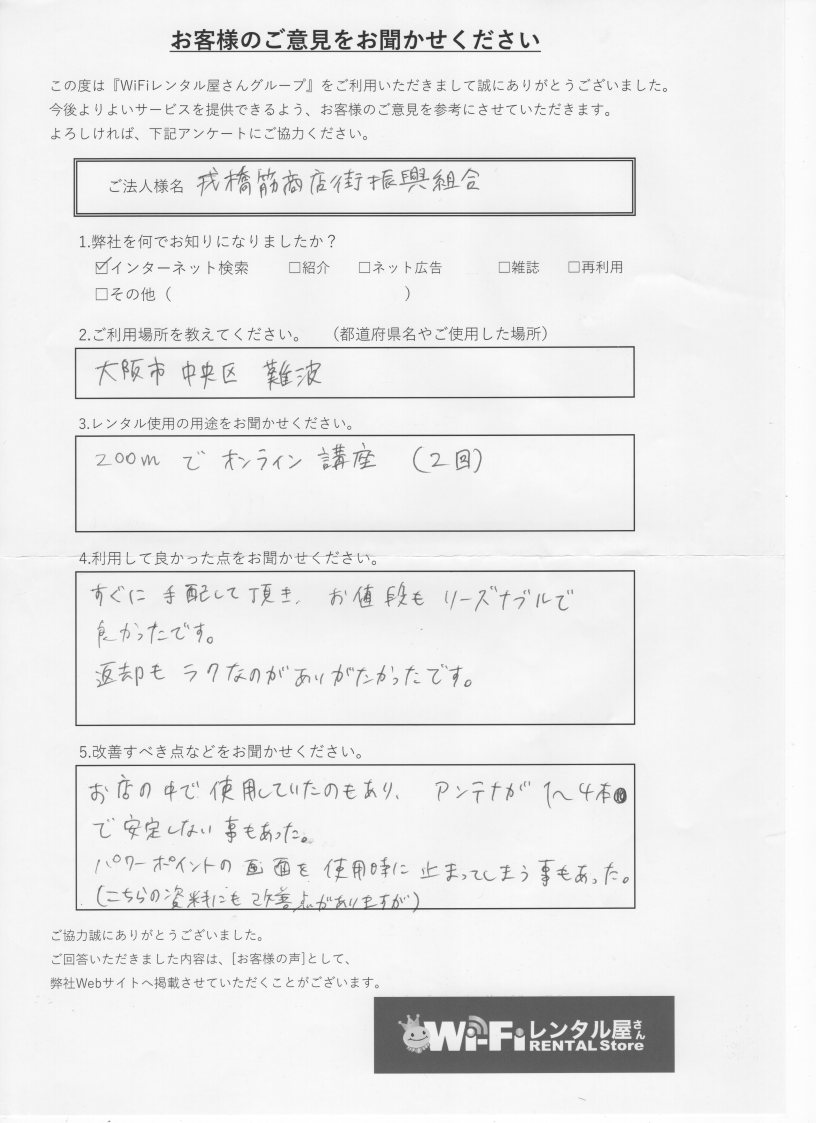 お客様のご意見をお聞かせください
この度は『WiFiレンタル屋さんグループ』をご利用いただきまして誠にありがとうございました。
今後よりよいサービスを提供できるよう、お客様のご意見を参考にさせていただきます。
よろしければ、下記アンケートにご協力ください。
ご法人様名 戎橋筋商店街振興組合
1.弊社を何でお知りになりましたか？
☑インターネット検索 □紹介 □ネット広告 □雑誌 □再利用
□その他（ ）
2.ご利用場所を教えてください。 （都道府県名やご使用した場所）
大阪市 中央区 難波
3.レンタル使用の用途をお聞かせください。
zoom で オンライン 講座 (2回)
4.利用して良かった点をお聞かせください。
すぐに 手配して頂き、お値段も リーズナブルで
良かったです。
返却も ラクなのがありがたかったです。
5.改善すべき点などをお聞かせください。
お店の中で使用していたのもあり、アンテナが 1〜4本
で安定しない事もあった。
パワーポイントの画面を使用時に止まってしまう事もあった。
(こちらの資料にも改善点がありますが)
ご協力誠にありがとうございました。
ご回答いただきました内容は、[お客様の声]として、
弊社Webサイトへ掲載させていただくことがございます。
Wi-Fiレンタル屋さん
RENTAL Store